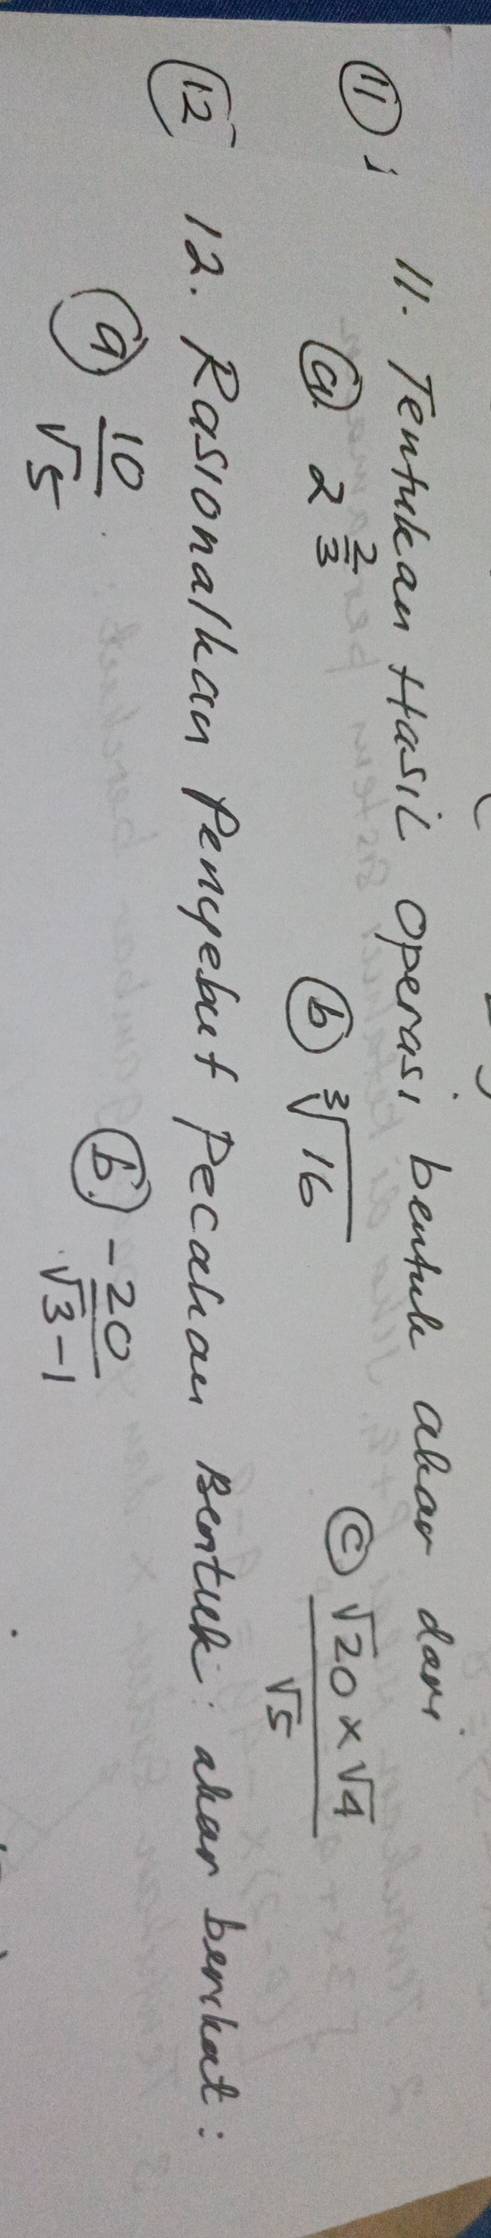 11 ; 11. Tentukan Hasil operasi bentuk akar dari
a. 2^(2/3) b ∛16 c (√20 × √4)/√5
12 12. Rasionalkan Penyebut Pecahan Bentuk : akar berikut :
a 10/√5 . b. -20/(√3-1)